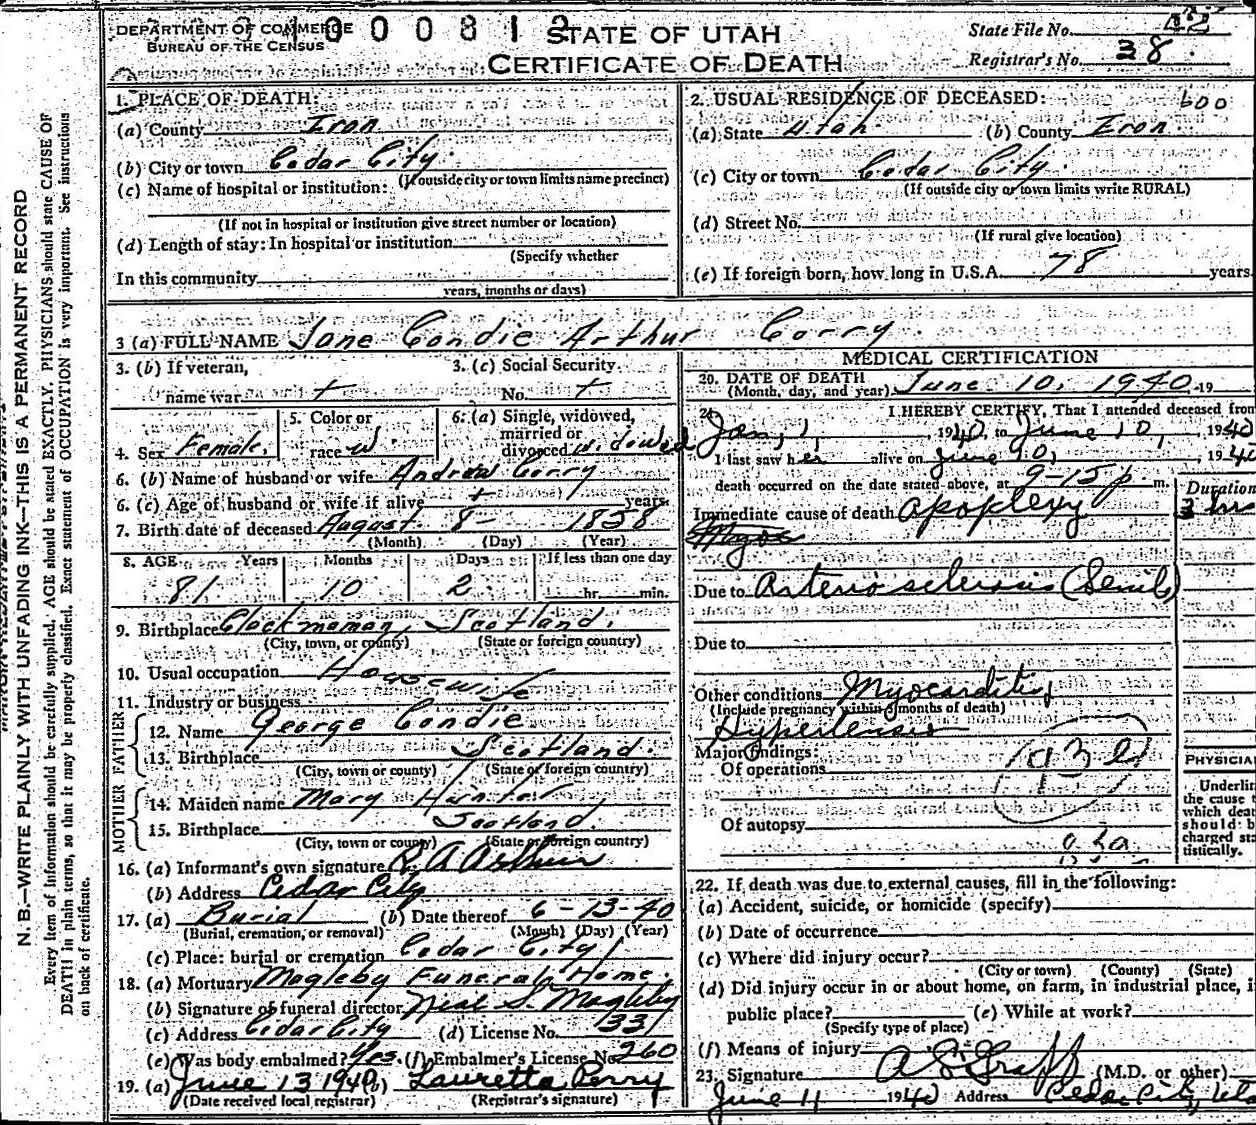 DEPARTMENT OF COMMERCE
BUREAU OF THE CENSUS
0 0 0 8 1 2
STATE OF UTAH
CERTIFICATE OF DEATH
State File No.
Registrar's No. 38
N. B.—WRITE PLAINLY WITH UNFADING INK—THIS IS A PERMANENT RECORD
Every item of information should be carefully supplied. AGE should be stated EXACTLY. PHYSICIANS should state CAUSE OF
DEATH in plain terms, so that it may be properly classified. Exact statement of OCCUPATION is very important. See instructions
on back of certificate.
1. PLACE OF DEATH:
(a) County Iron
(b) City or town Cedar City.
(If outside city or town limits name precinct)
(c) Name of hospital or institution:
(If not in hospital or institution give street number or location)
(d) Length of stay: In hospital or institution
(Specify whether
In this community
years, months or days)
2. USUAL RESIDENCE OF DECEASED: 600
(a) State Utah. (b) County Iron.
(c) City or town Cedar City.
(If outside city or town limits write RURAL)
(d) Street No.
(If rural give location)
(e) If foreign born, how long in U.S.A. 78 years.
3 (a) FULL NAME Jane Condie Arthur Corry.
3. (b) If veteran, name war + 3. (c) Social Security No. +
4. Sex Female. 5. Color or race W. 6. (a) Single, widowed, married or divorced widowed
6. (b) Name of husband or wife Andrew Corry
6. (c) Age of husband or wife if alive + years.
7. Birth date of deceased August 8- 1858
(Month) (Day) (Year)
8. AGE Years Months Days If less than one day
81 10 2 hr. min.
9. Birthplace Clackmanan Scotland.
(City, town, or county) (State or foreign country)
10. Usual occupation Housewife
11. Industry or business
FATHER
12. Name George Condie
13. Birthplace Scotland.
(City, town or county) (State or foreign country)
MOTHER
14. Maiden name Mary Hunter
15. Birthplace Scotland.
(City, town or county) (State or foreign country)
16. (a) Informant's own signature R. A. Arthur
(b) Address Cedar City
17. (a) Burial (b) Date thereof 6-13-40
(Burial, cremation, or removal) (Month) (Day) (Year)
(c) Place: burial or cremation Cedar City
18. (a) Mortuary Magleby Funeral Home.
(b) Signature of funeral director Neal S. Magleby
(c) Address Cedar City (d) License No. 331
(e) Was body embalmed? Yes. (f) Embalmer's License No. 260
19. (a) June 13 1940 (b) Lauretta Perry
(Date received local registrar) (Registrar's signature)
MEDICAL CERTIFICATION
20. DATE OF DEATH June 10, 1940 19
(Month, day, and year)
21. I HEREBY CERTIFY, That I attended deceased from
Jan, 1, 1940, to June 10, 1940
I last saw her alive on June 10, 1940
death occurred on the date stated above, at 9-15 p m.
Duration
Immediate cause of death apoplexy 3 hrs
Due to Arterio sclerosis (Senile)
Due to
Other conditions Myocarditis
(Include pregnancy within 3 months of death)
Hypertension
Major findings:
Of operations
PHYSICIAN
Of autopsy
Underline
the cause
which death
should be
charged sta
tistically.
22. If death was due to external causes, fill in the following:
(a) Accident, suicide, or homicide (specify)
(b) Date of occurrence
(c) Where did injury occur?
(City or town) (County) (State)
(d) Did injury occur in or about home, on farm, in industrial place, i
public place? (e) While at work?
(Specify type of place)
(f) Means of injury
23. Signature A. S. Graff (M.D. or other)
June 11 1940 Address Cedar City, Uta